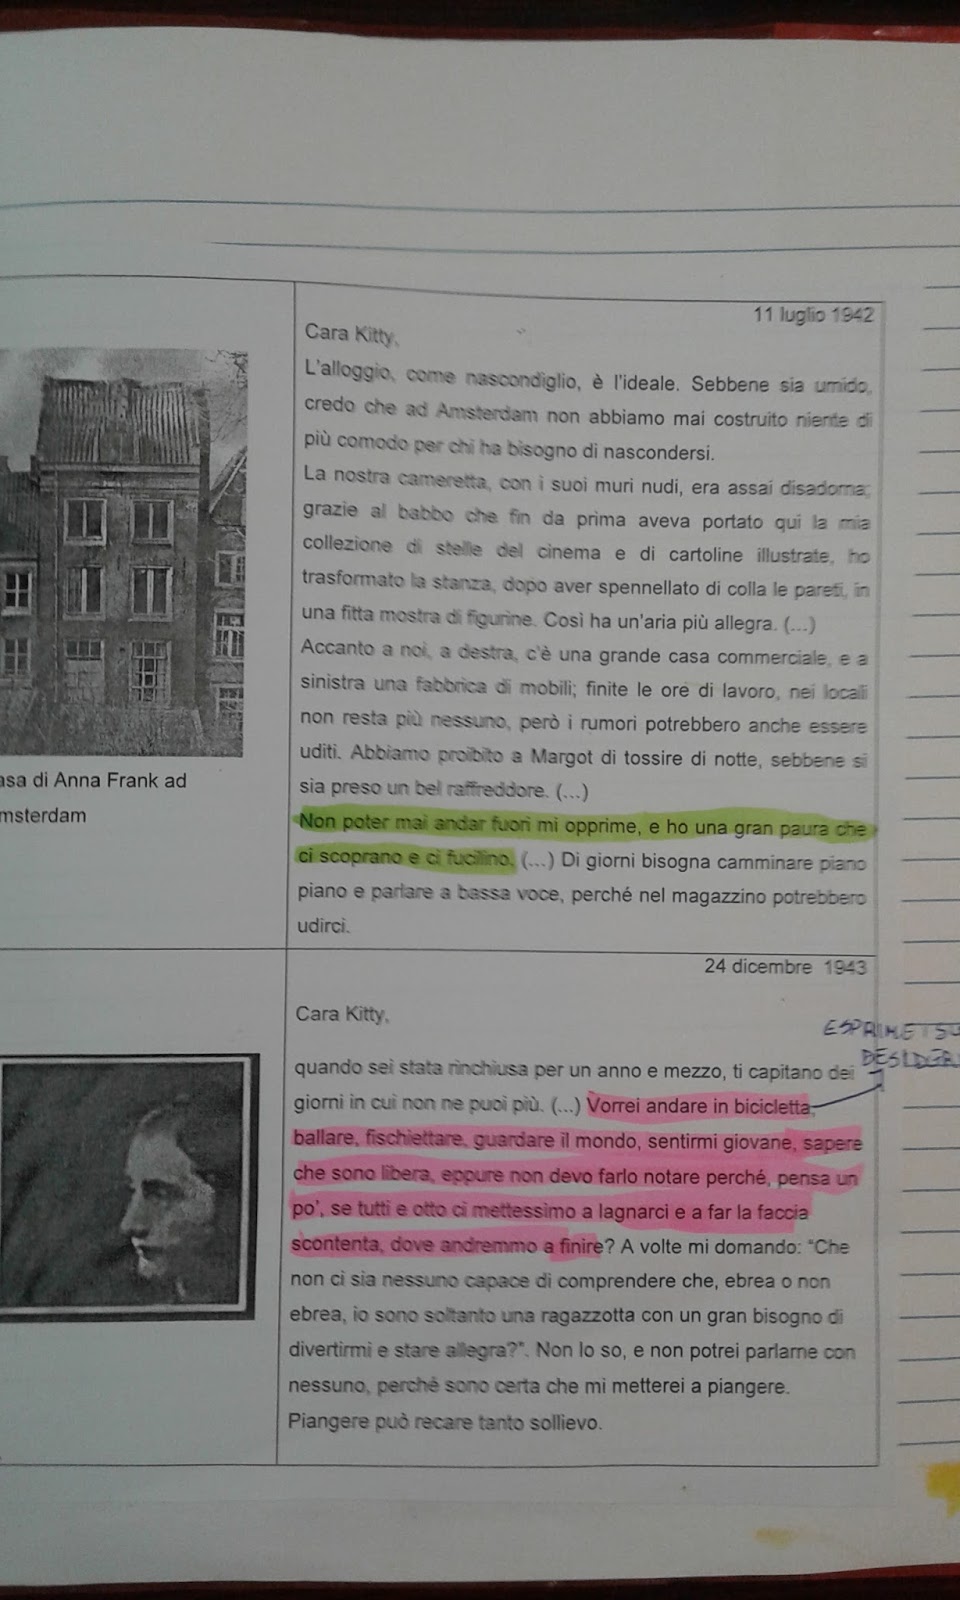 11 luglio 1942
Cara Kitty,
L'alloggio, come nascondiglio, è l'ideale. Sebbene sia umido,
credo che ad Amsterdam non abbiamo mai costruito niente di
più comodo per chi ha bisogno di nascondersi.
La nostra cameretta, con i suoi muri nudi, era assai disadorna;
grazie al babbo che fin da prima aveva portato qui la mia
collezione di stelle del cinema e di cartoline illustrate, ho
trasformato la stanza, dopo aver spennellato di colla le pareti, in
una fitta mostra di figurine. Così ha un'aria più allegra. (...)
Accanto a noi, a destra, c'è una grande casa commerciale, e a
sinistra una fabbrica di mobili; finite le ore di lavoro, nei locali
non resta più nessuno, però i rumori potrebbero anche essere
uditi. Abbiamo proibito a Margot di tossire di notte, sebbene si
sia preso un bel raffreddore. (...)
Non poter mai andar fuori mi opprime, e ho una gran paura che
ci scoprano e ci fucilino. (...) Di giorni bisogna camminare piano
piano e parlare a bassa voce, perché nel magazzino potrebbero
udirci.
asa di Anna Frank ad
msterdam
24 dicembre 1943
Cara Kitty,
ESPRIME I SU
DESIDERI
quando sei stata rinchiusa per un anno e mezzo, ti capitano dei
giorni in cui non ne puoi più. (...) Vorrei andare in bicicletta,
ballare, fischiettare, guardare il mondo, sentirmi giovane, sapere
che sono libera, eppure non devo farlo notare perché, pensa un
po', se tutti e otto ci mettessimo a lagnarci e a far la faccia
scontenta, dove andremmo a finire? A volte mi domando: "Che
non ci sia nessuno capace di comprendere che, ebrea o non
ebrea, io sono soltanto una ragazzotta con un gran bisogno di
divertirmi e stare allegra?". Non lo so, e non potrei parlarne con
nessuno, perché sono certa che mi metterei a piangere.
Piangere può recare tanto sollievo.